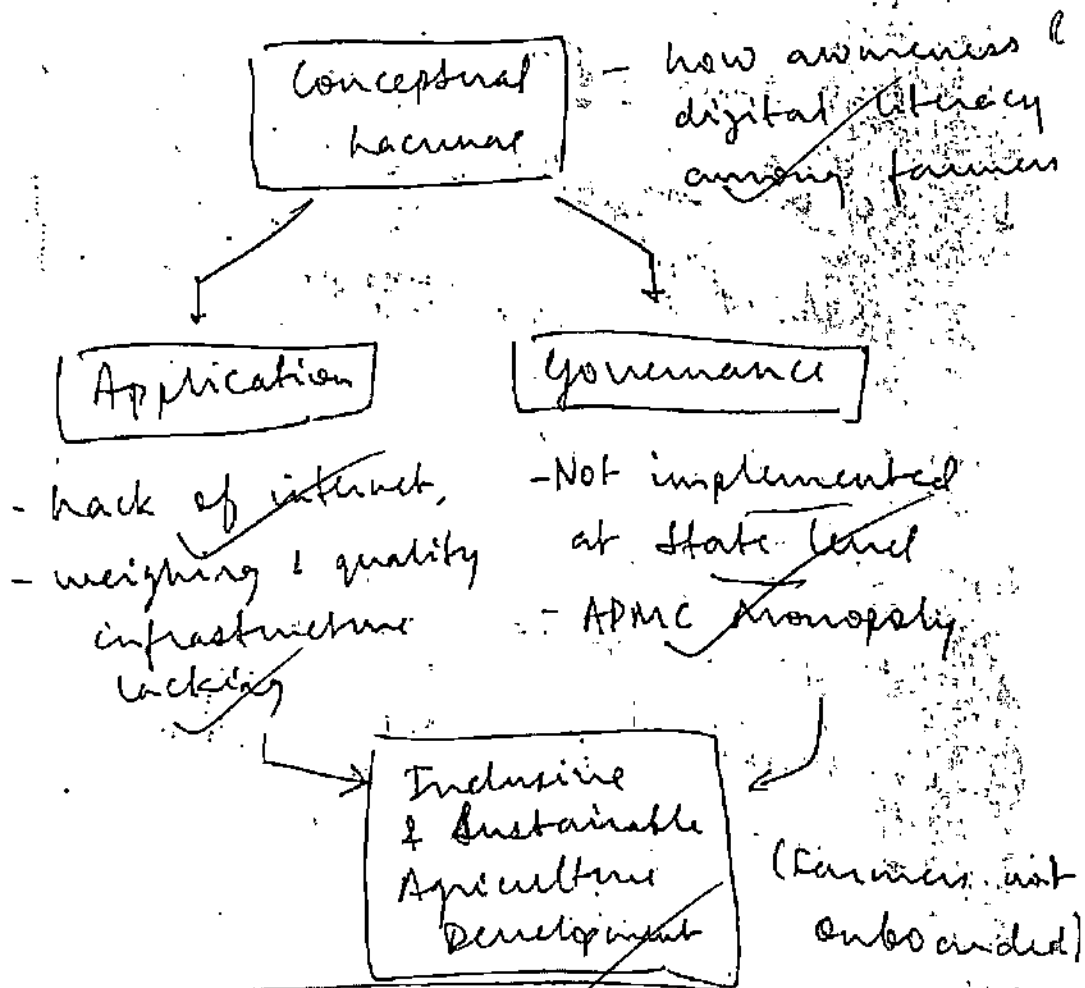 Conceptual
Lacunae
- Low awareness &
digital literacy
among farmers
Application
Governance
- Lack of internet,
- weighing & quality
infrastructure
lacking
- Not implemented
at State level
- APMC Monopoly
Inclusive
& Sustainable
Agriculture
Development
(Farmers not
onboarded)